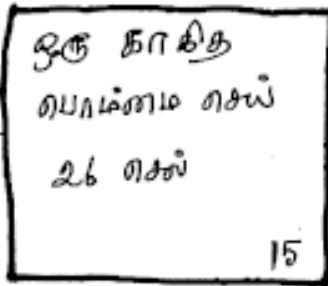 ஒரு காகித
பொம்மை செய்
26 செல்
15